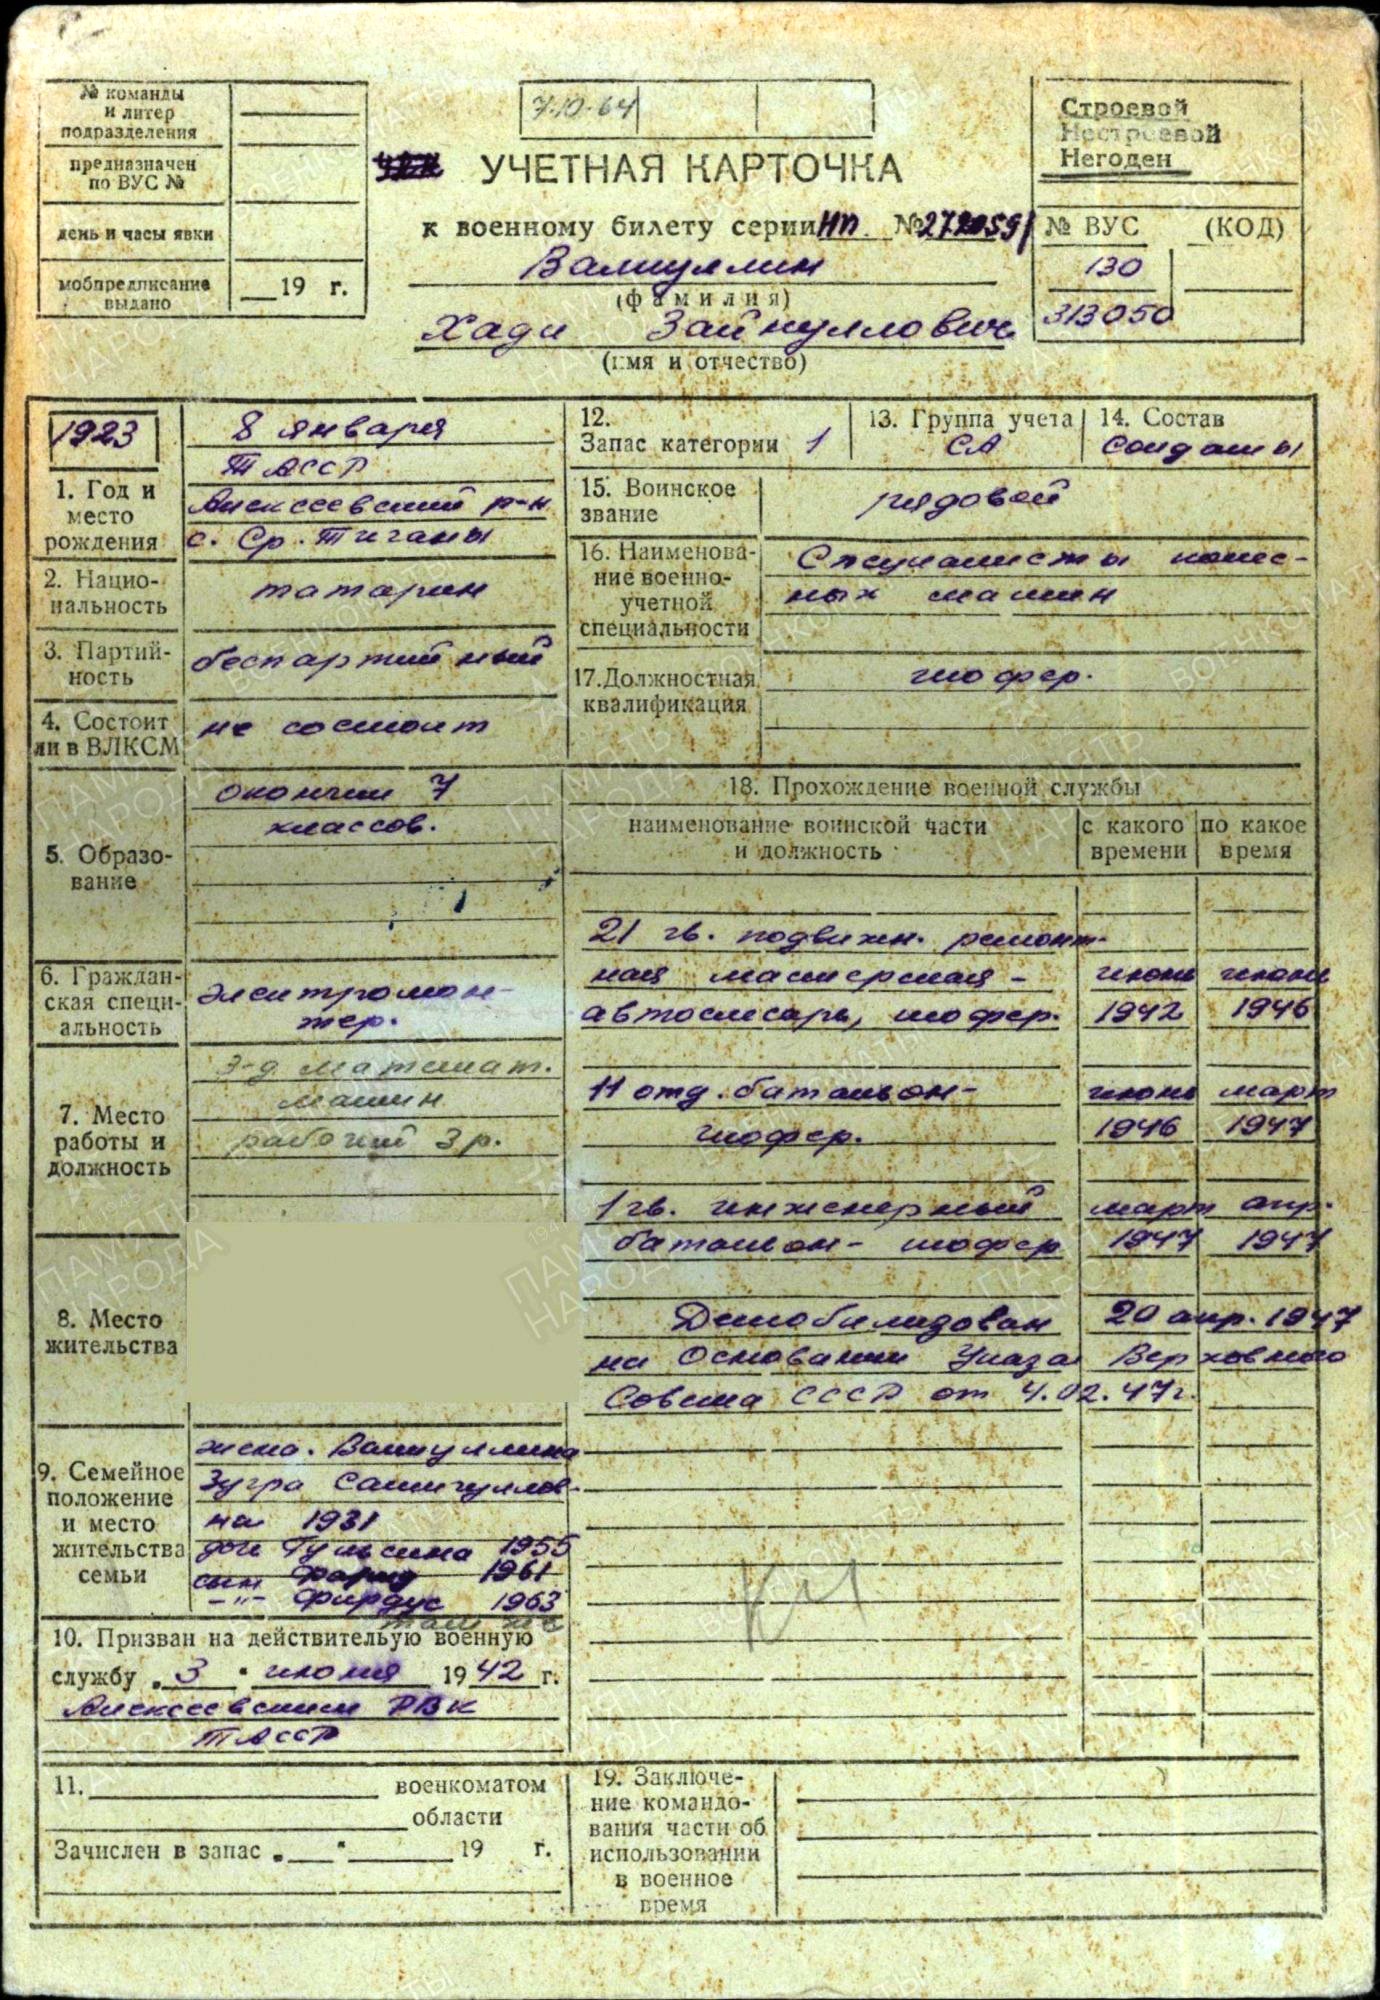 № команды
и литер
подразделения
предназначен
по ВУС №
день и часы явки
мобпредписание
выдано
19 г.
7.10.64
УЧЕТНАЯ КАРТОЧКА
к военному билету серии НП №2720591
Валиуллин
(фамилия)
Хади Зайнуллович
(имя и отчество)
Строевой
Нестроевой
Негоден
№ ВУС (КОД)
130
313050
1923
1. Год и
место
рождения
8 января
ТАССР
Алексеевский р-н
с. Ср. Тиганы
2. Нацио-
нальность
татарин
3. Партий-
ность
беспартийный
4. Состоит
ли в ВЛКСМ
не состоит
5. Образо-
вание
окончил 7
классов.
6. Граждан-
ская специ-
альность
электромон-
тер.
7. Место
работы и
должность
З-д математ.
машин
рабочий 3 р.
8. Место
жительства
9. Семейное
положение
и место
жительства
семьи
жена. Валиуллина
Зугра Салигуллов-
на 1931
доч Гульсина 1955
сын Фарид 1961
-"- Фирдус 1963
там же
10. Призван на действительую военную
службу „3“ июня 1942 г.
Алексеевским РВК
ТАССР
11. военкоматом
области
Зачислен в запас „ “ 19 г.
12.
Запас категории 1
13. Группа учета
СА
14. Состав
солдаты
15. Воинское
звание
рядовой
16. Наименова-
ние военно-
учетной
специальности
Специалисты колес-
ных машин
17. Должностная
квалификация
шофер.
18. Прохождение военной службы
наименование воинской части
и должность
с какого
времени
по какое
время
21 гв. подвижн. ремонт-
ная мастерская - июнь июнь
автослесарь, шофер. 1942 1946
11 отд. батальон- июнь март
шофер. 1946 1947
1 гв. инженерный март апр.
батальон - шофер 1947 1947
Демобилизован 20 апр. 1947
на основании Указа Верховного
Совета СССР от 4.02.47г.
19. Заключе-
ние командо-
вания части об
использовании
в военное
время
ПАМЯТЬ
НАРОДА
ВОЕНКОМАТЫ